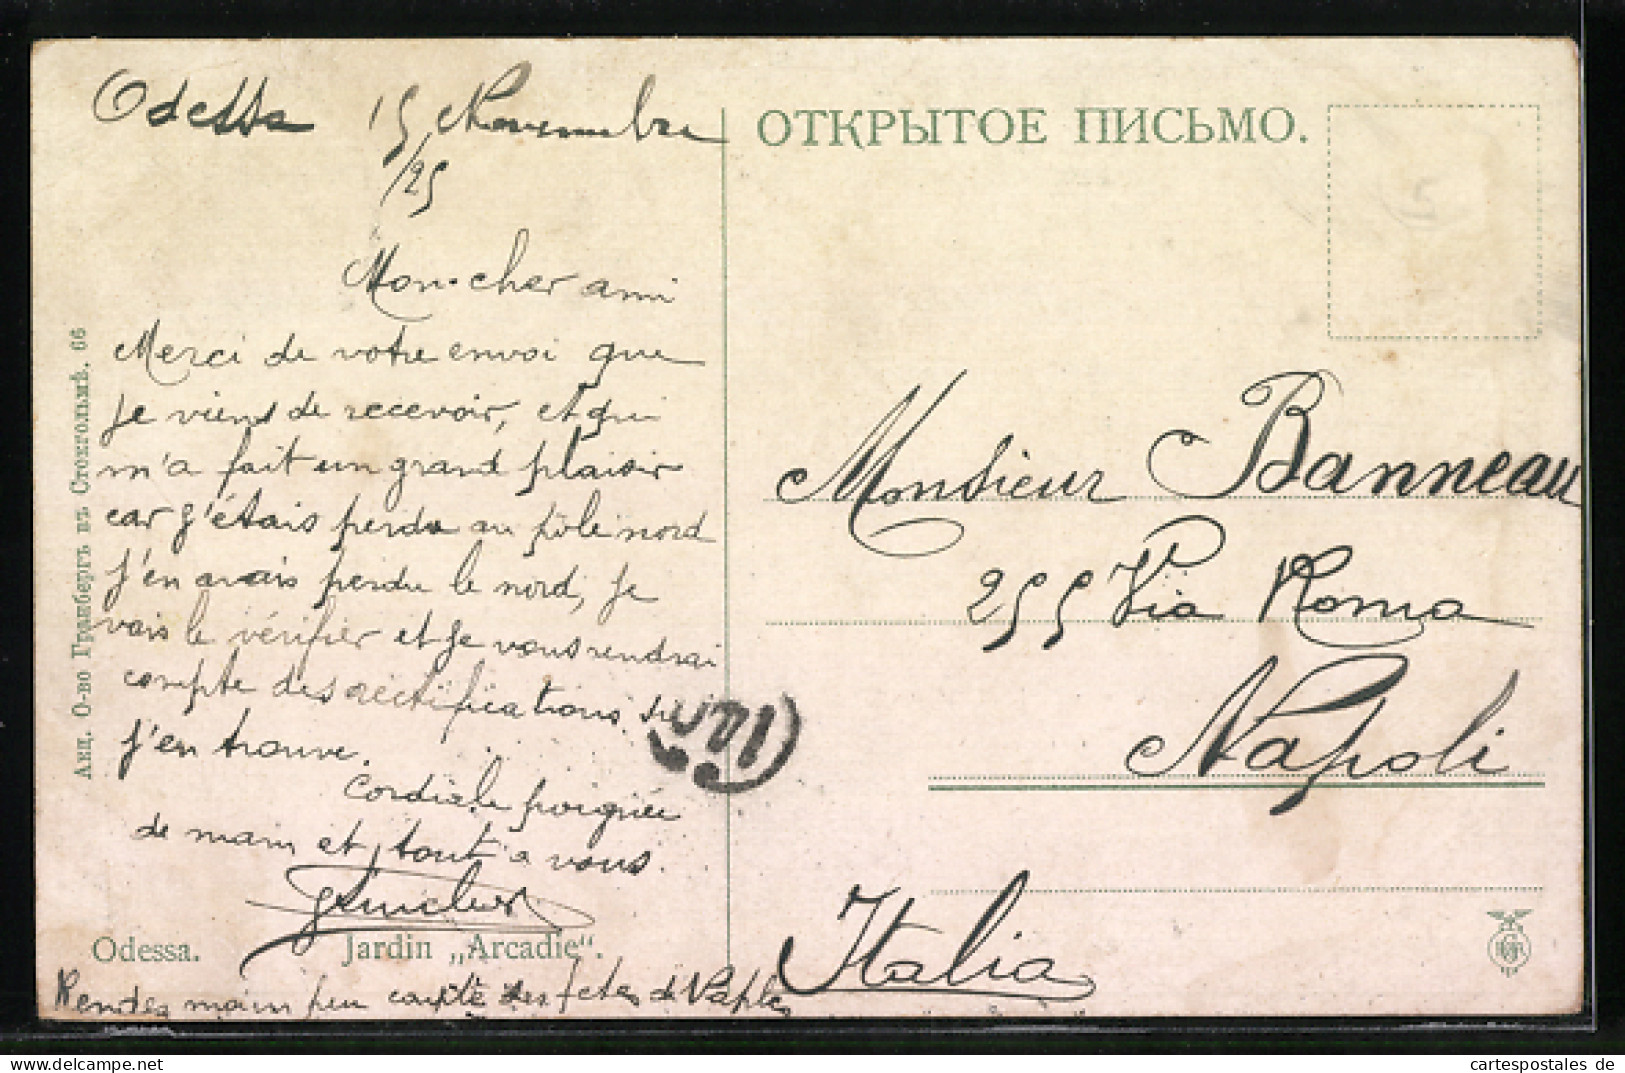 Odessa 15 Novembre
/25
Mon cher ami
Merci de votre envoi que
je viens de recevoir, et qui
m'a fait un grand plaisir
car j'étais perdu au pôle nord
j'en avais perdu le nord, je
vais le vérifier et je vous rendrai
compte des rectifications si
j'en trouve.
Cordiale poignée
de main et tout à vous.
Odessa. Jardin „Arcadie“.
main peu fêtes de Naple
Акц. О-во Гранбергъ въ Стокгольмѣ. 66
ОТКРЫТОЕ ПИСЬМО.
Monsieur Banneau
255 Via Roma
Napoli
Italia
cartespostales de